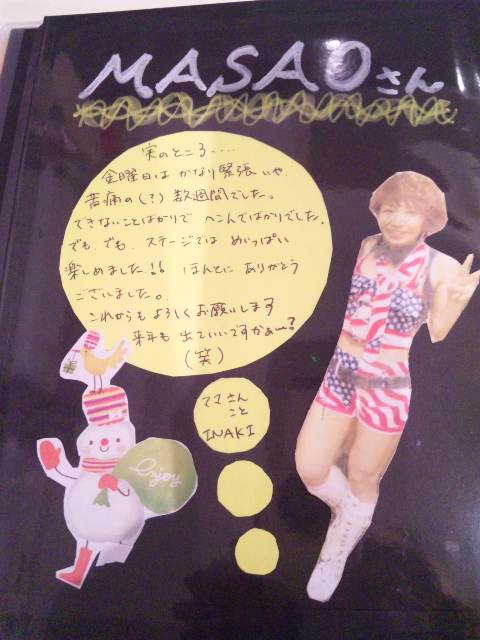 MASAOさん
実のところ....
金曜日は かなり緊張いや、
苦痛の(?)数週間でした。
できないことばかりで へこんでばかりでした。
でも、でも、ステージでは めいっぱい
楽しめました!! ほんとに ありがとう
ございました。
これからも よろしくお願いします
来年も 出ていいですかぁ〜?
(笑)
ママさん
こと
INAKI
Enjoy